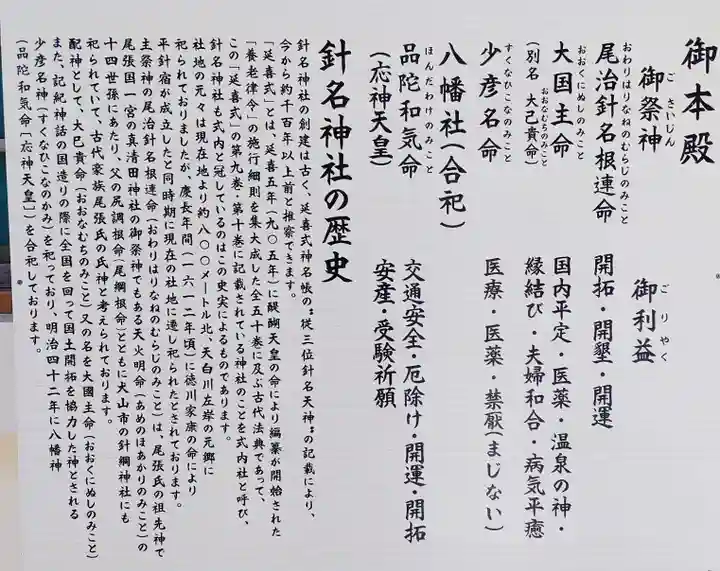 御本殿
御祭神
ごさいじん
御利益
ごりやく
尾治針名根連命
おわりはりなねのむらじのみこと
開拓・開墾・開運
大国主命
おおくにぬしのみこと
(別名 大己貴命)
おおなむちのみこと
国内平定・医薬・温泉の神・
縁結び・夫婦和合・病気平癒
少彦名命
すくなひこなのみこと
医療・医薬・禁厭(まじない)
八幡社(合祀)
品陀和気命
ほんだわけのみこと
(応神天皇)
交通安全・厄除け・開運・開拓
安産・受験祈願
針名神社の歴史
針名神社の創建は古く、延喜式神名帳の〝従三位針名天神〟の記載により、
今から約千百年以上前と推察できます。
「延喜式」とは、延喜五年(九〇五年)に醍醐天皇の命により編纂が開始された
「養老律令」の施行細則を集大成した全五十巻に及ぶ古代法典であって、
この「延喜式」の第九巻・第十巻に記載されている神社のことを式内社と呼び、
針名神社も式内と冠しているのはこの史実によるものであります。
社地の元々は現在地より約八〇〇メートル北、天白川左岸の元郷に
祀られておりましたが、慶長年間(一六一二年頃)に徳川家康の命により
平針宿が成立したと同時期に現在の社地に遷し祀られたとされております。
主祭神の尾治針名根連命(おわりはりなねのむらじのみこと)は、尾張氏の祖先神で
尾張国一宮の真清田神社の御祭神でもある天火明命(あめのほあかりのみこと)の
十四世孫にあたり、父の尻調根命(尾綱根命)とともに犬山市の針綱神社にも
祀られていて、古代家族尾張氏の氏神と考えられております。
配神として、大己貴命(おおなむちのみこと)又の名を大國主命(おおくにぬしのみこと)
また、記紀神話の国造りの際に全国を回って国土開拓を協力した神とされる
少彦名神(すくなひこなのかみ)を祀っており、明治四十二年に八幡神
(品陀和気命〔応神天皇〕)を合祀しております。